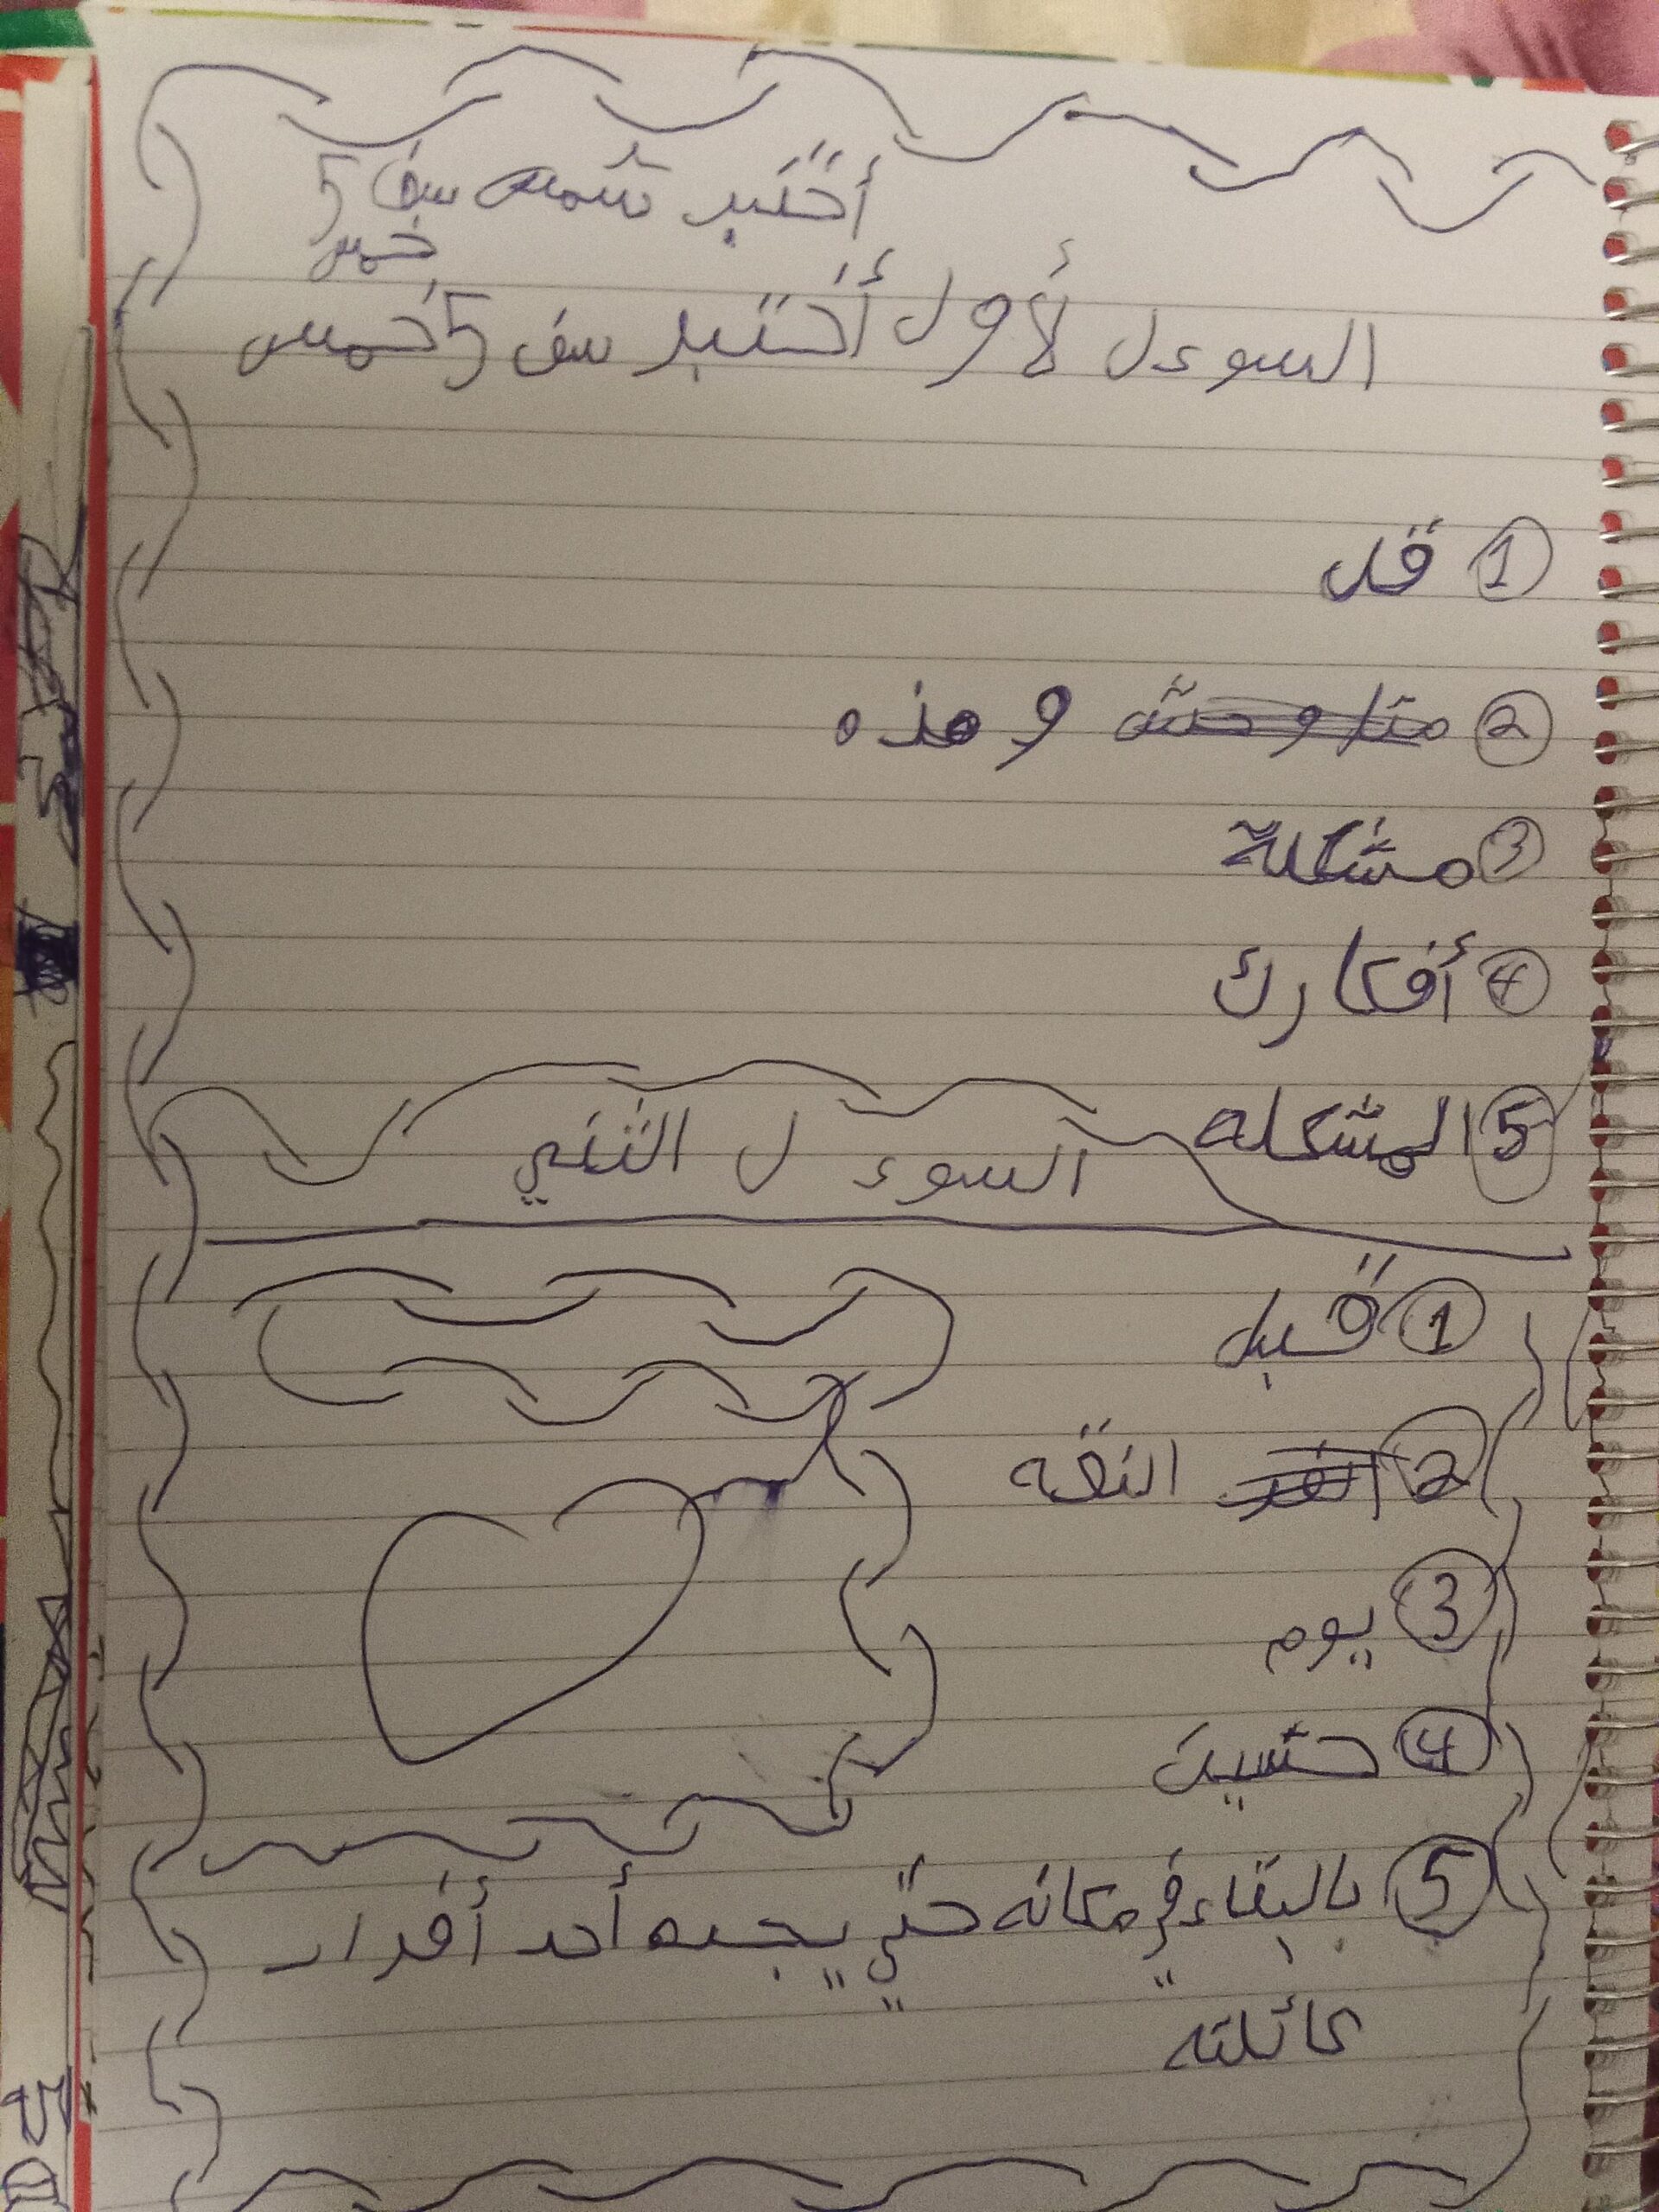 أختبر شمسه سف 5
خمس
السوءل لأول أختبر سف 5 خمس
1 قل
2 و هذه
3 مشكلة
4 أفكارك
5 المشكله
السوء ل الثني
1 قبل
2 الثقه
3 يوم
4 حتسين
5 بالبقاء في مكانه حتي يجده أحد أفرار
عائلته